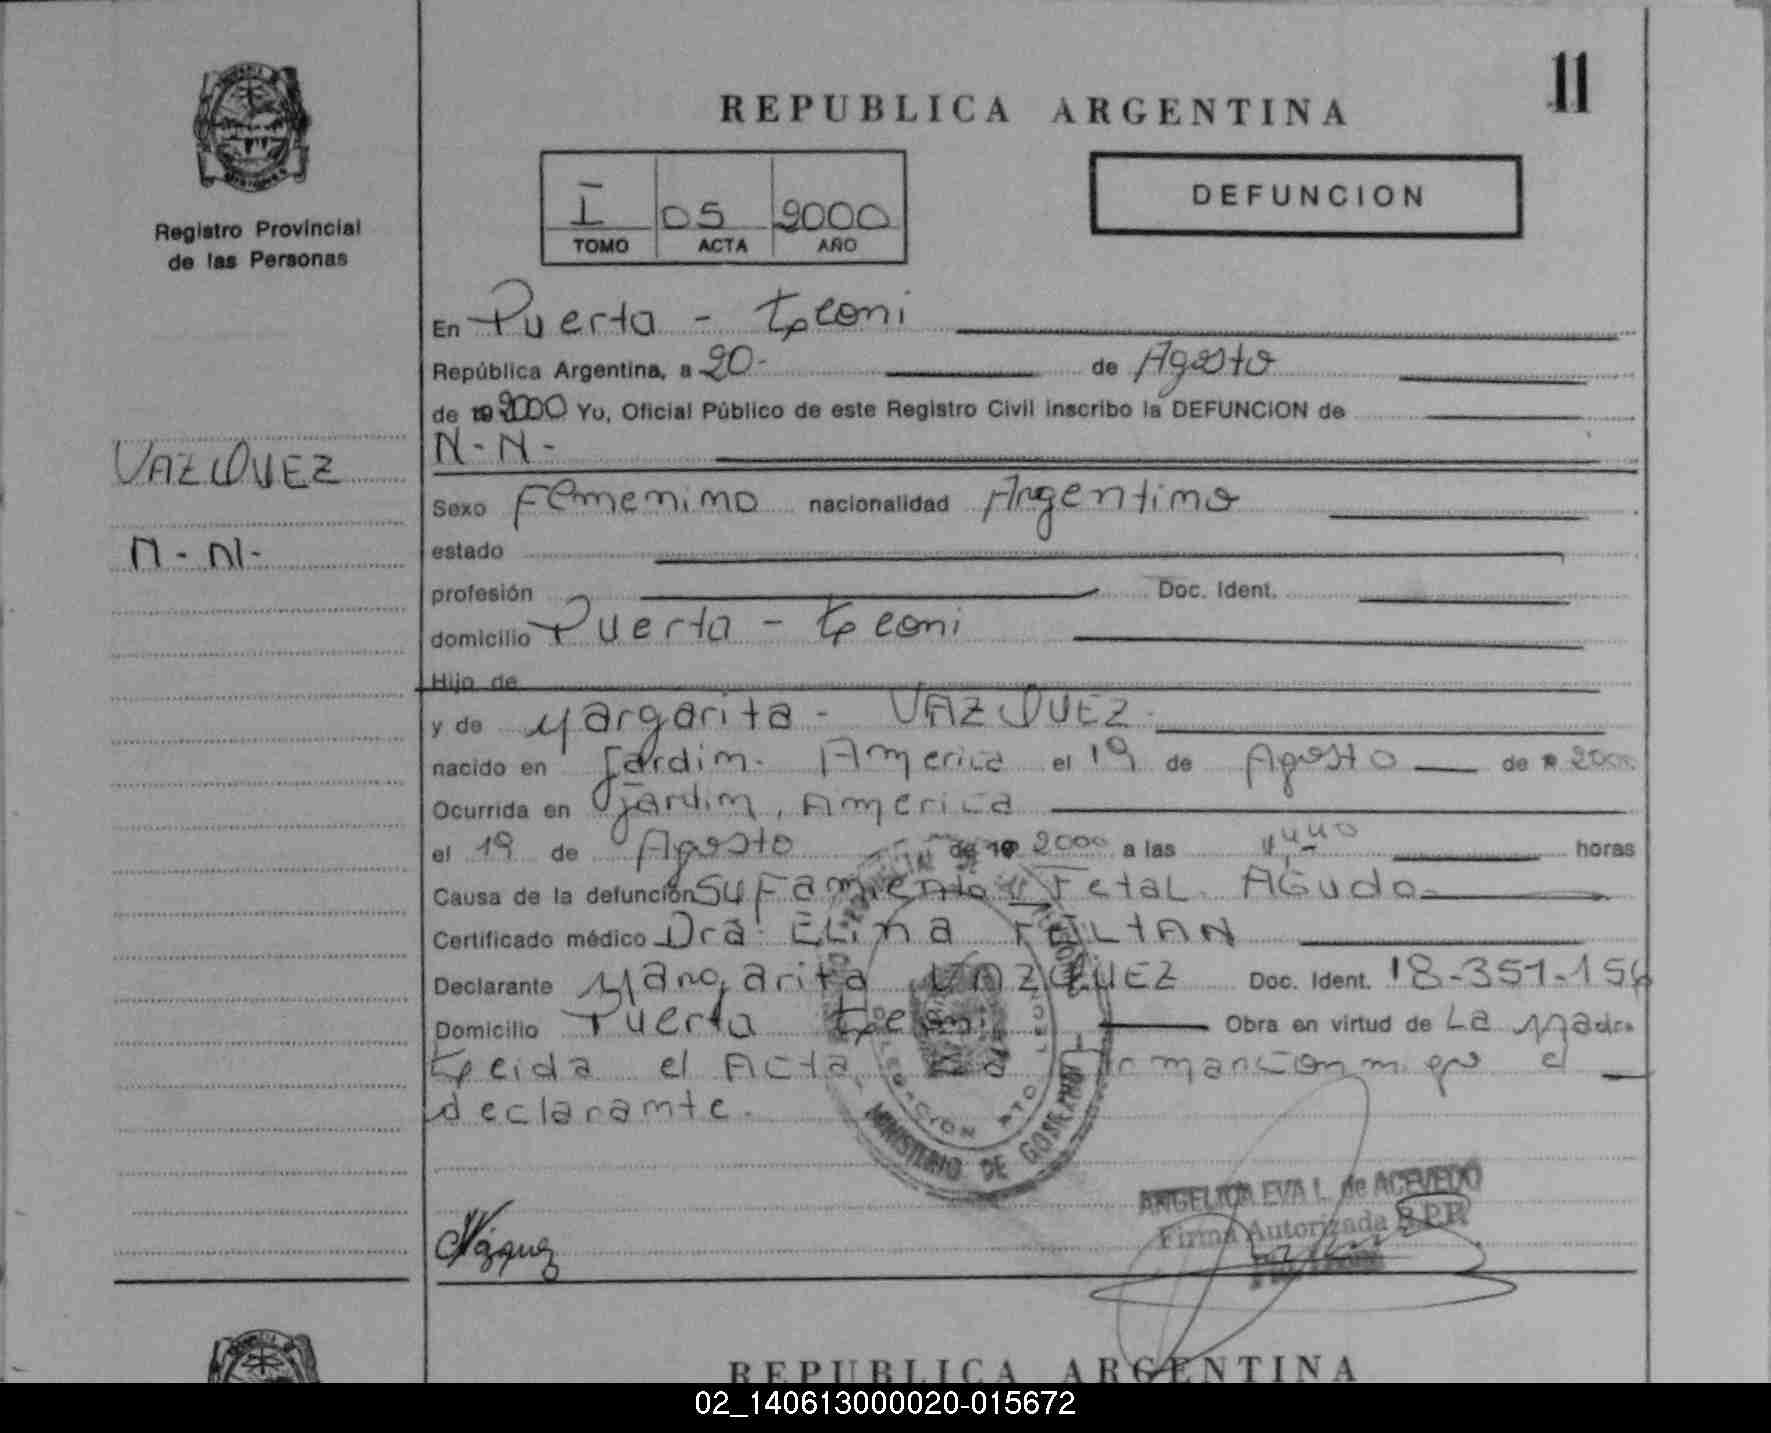 11
REPUBLICA ARGENTINA
I 05 2000
TOMO ACTA AÑO
DEFUNCION
Registro Provincial
de las Personas
VAZQUEZ
N-N-
En Puerto - Leoni
República Argentina, a 20- de Agosto
de 19 2000 Yo, Oficial Público de este Registro Civil inscribo la DEFUNCION de
N-N-
Sexo Femenino nacionalidad Argentino
estado
profesión Doc. Ident.
domicilio Puerto - Leoni
Hijo de
y de Margarita - VAZQUEZ-
nacido en Jardin. America el 19 de Agosto de 2000
Ocurrida en Jardin, America
el 19 de Agosto de 19 2000 a las horas
Causa de la defunción Sufamiento Fetal. AGudo
Certificado médico Dra. ELina
Declarante Margarita VAZQUEZ Doc. Ident. 18-351-156
Domicilio Puerto Leoni Obra en virtud de La Madre
Leida el Acta La el
declarante.
MINISTERIO DE GOBIERNO
Vázquez
ANGELICA EVA L. de ACEVEDO
Firma Autorizada R.P.P.
REPUBLICA ARGENTINA
02_140613000020-015672